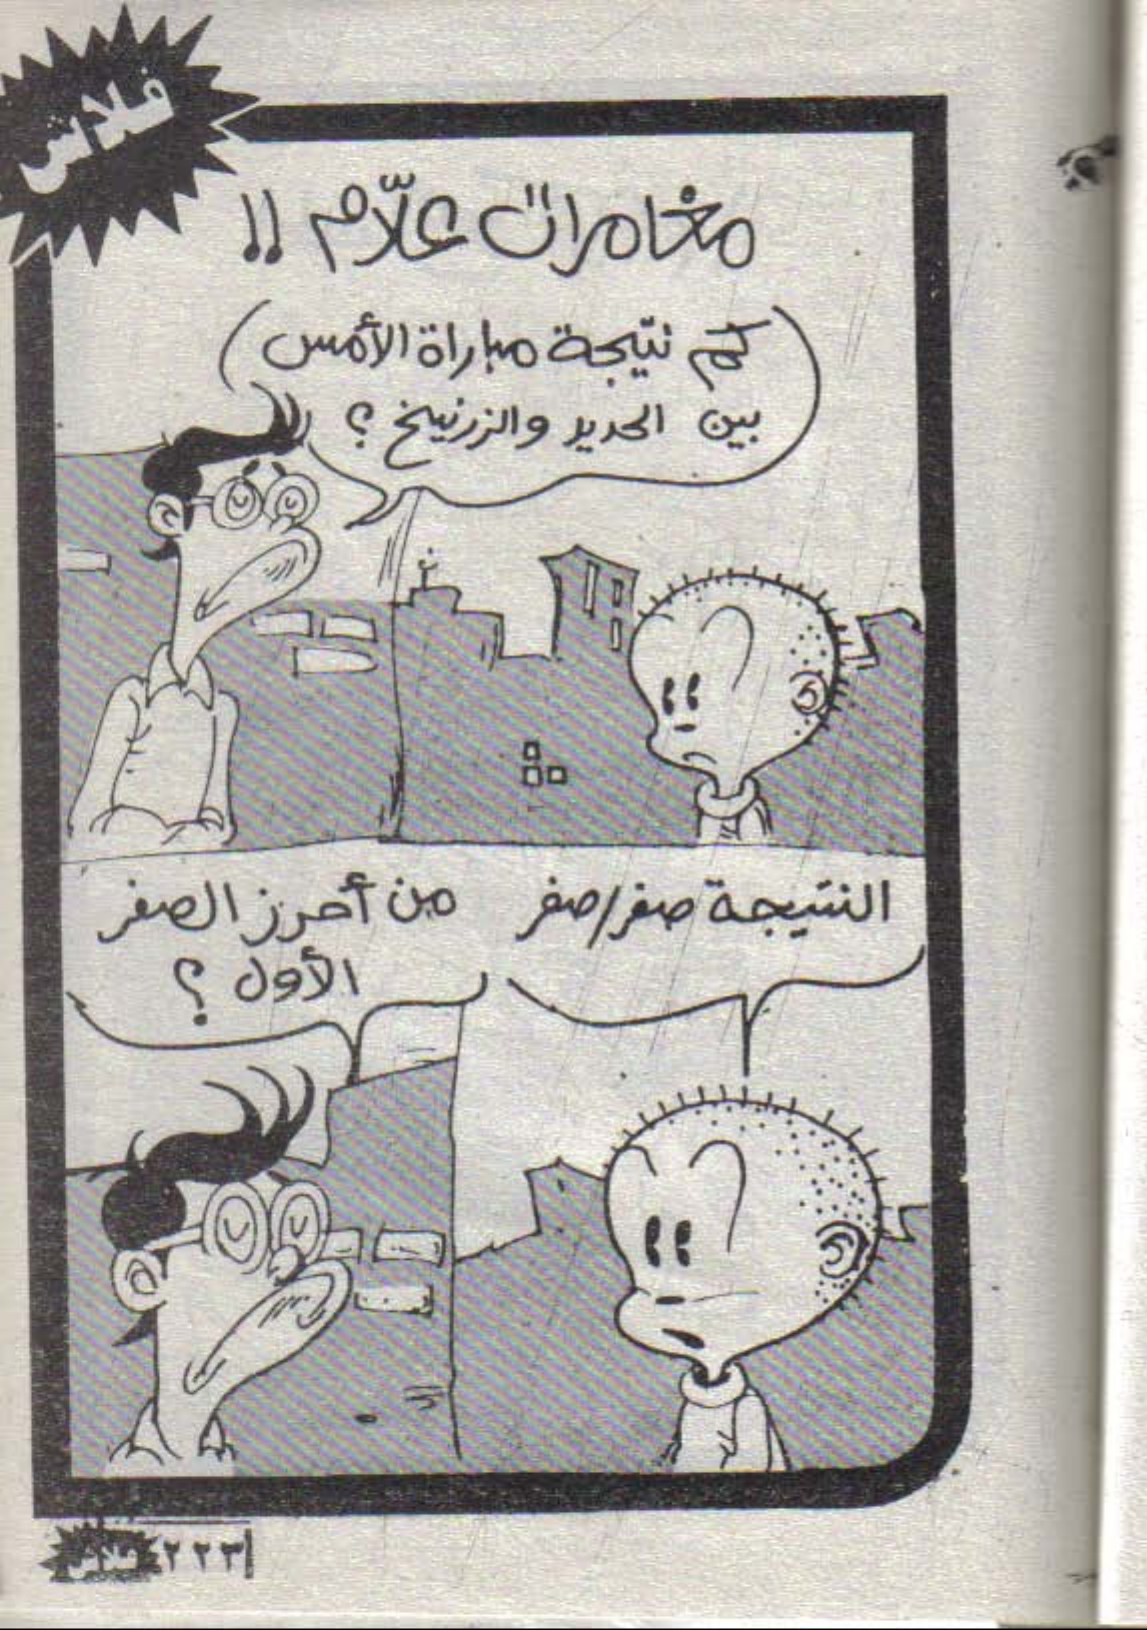 فلاش
مغامرات علّام !!
كم نتيجة مباراة الأمس
بين الحديد والزرنيخ ؟
النتيجة صفر/صفر
من أحرز الصفر
الأول ؟
فلاش ٢٢٣